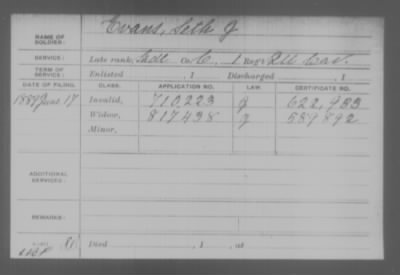 Evans, Seth J
NAME OF SOLDIER:
SERVICE: Late rank, Co. C, 1 Reg't Cav.
TERM OF SERVICE: Enlisted , 1 Discharged , 1
DATE OF FILING. CLASS. APPLICATION NO. LAW. CERTIFICATE NO.
1889 June 17 Invalid, 710,223 g 622,983
Widow, 817438 g 589892
Minor,
ADDITIONAL SERVICES:
REMARKS:
Died , 1 , at